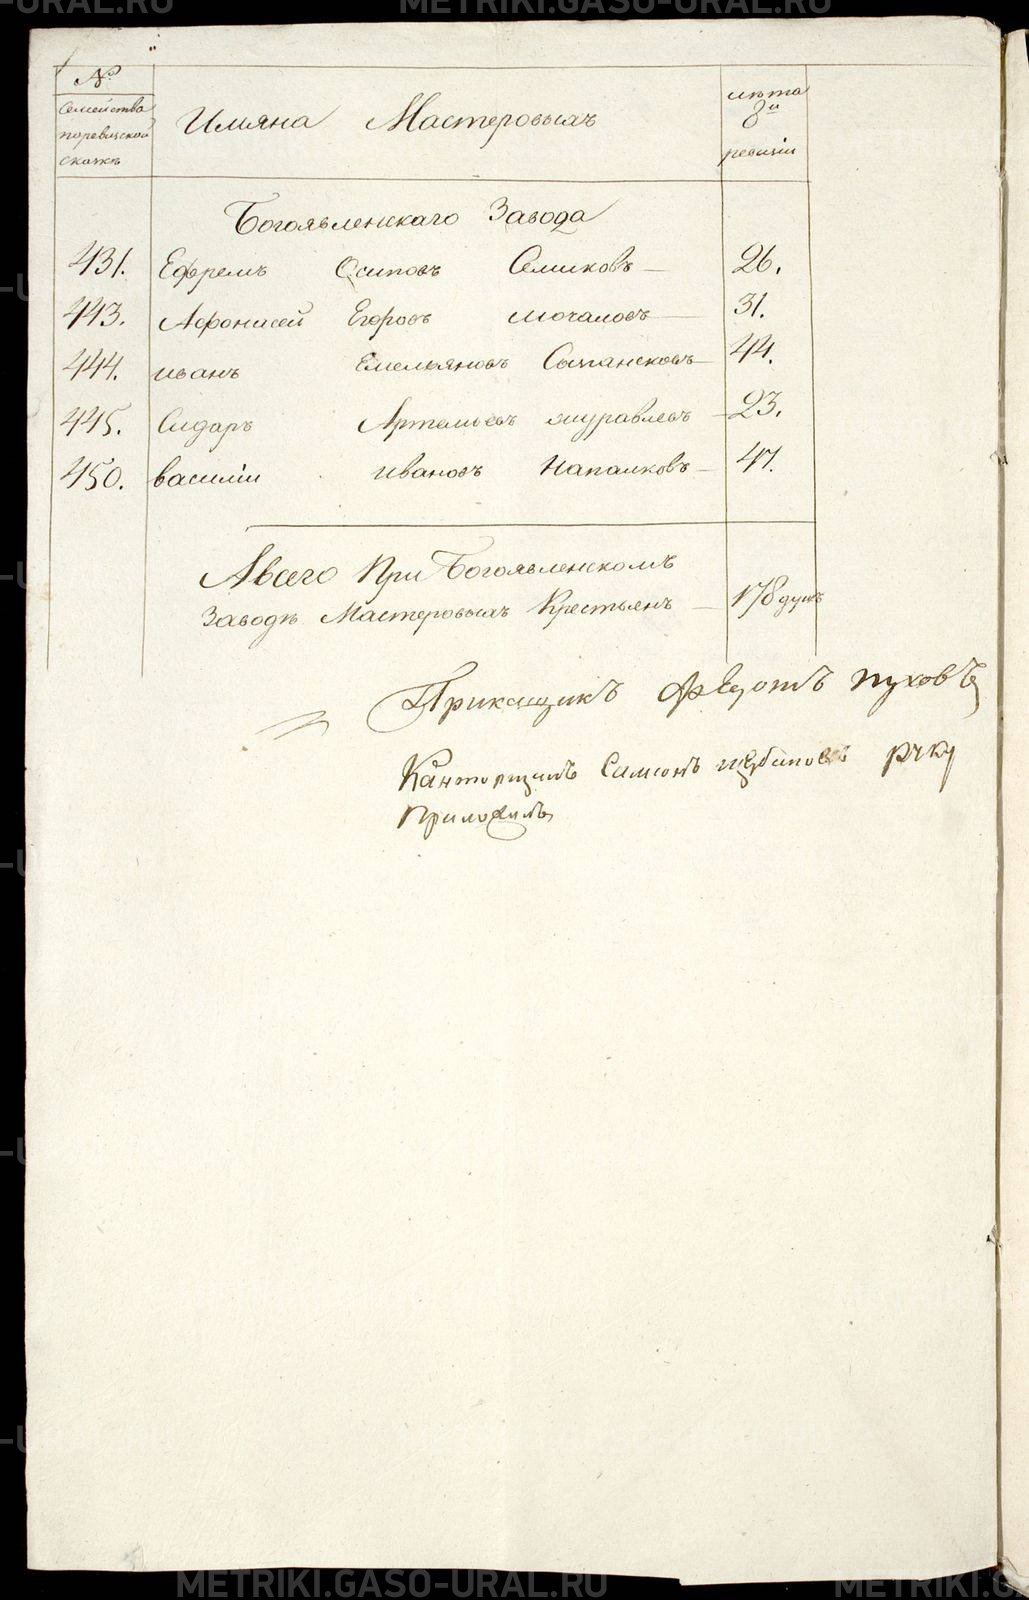 №
Семейства
поревизской
скаски
Имяна Мастеровыхъ
лѣта
8й
ревизіи
Богоявленскаго Завода
431. Ефремъ Осиповъ Семиковъ 26.
443. Афонасей Егоровъ мочаловъ 31.
444. иванъ Емельяновъ 44.
445. Сидаръ Артемьевъ журавлевъ 23.
450. василіи Ивановъ Напалковъ 47.
Авсего При Богоявленскомъ
Заводѣ Мастеровыхъ Крестьянъ 178 душъ
Прикащикъ Федотъ пуховъ
Канторщикъ Самсонъ руку
Приложилъ
METRIKI.GASO-URAL.RU
METRIKI.GASO-URAL.RU